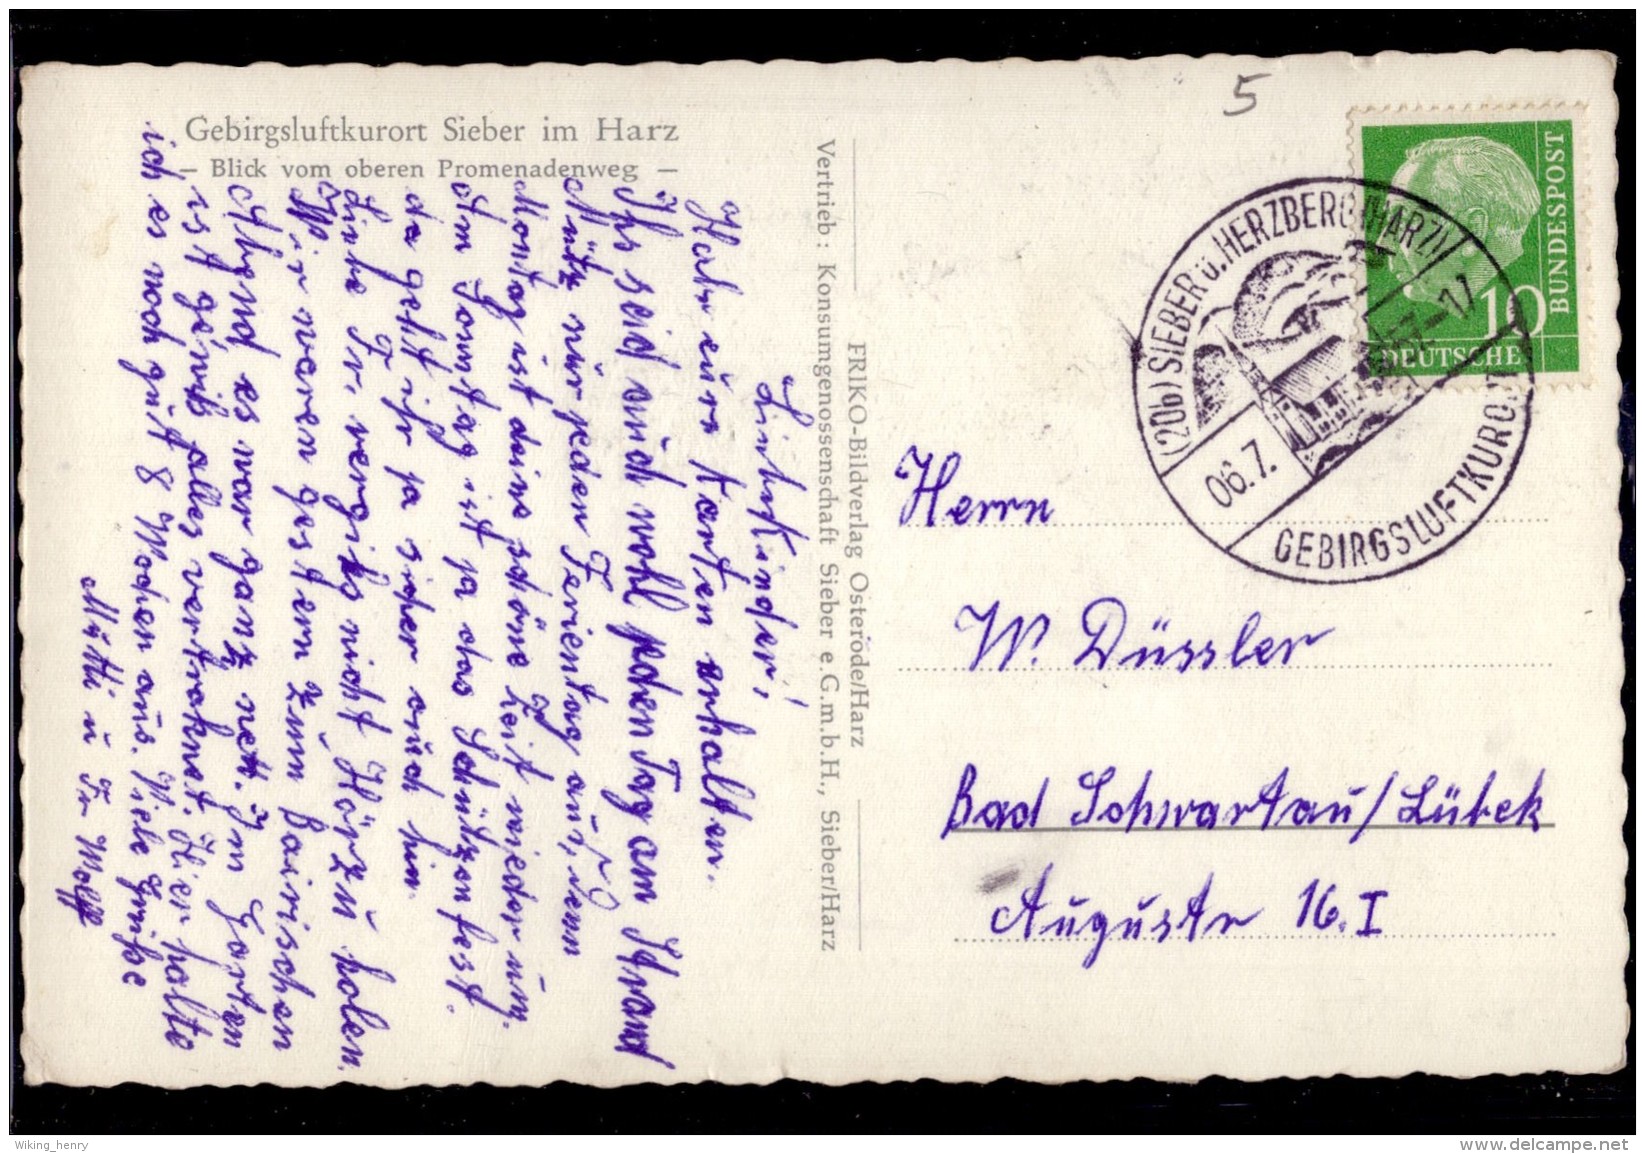 Gebirgsluftkurort Sieber im Harz
— Blick vom oberen Promenadenweg —
Liebe Kinder!
Habe eure Karten erhalten.
Ihr seid auch wohl jeden Tag am Strand
Nütz nur jeden Ferientag aus, denn
Montag ist deine schöne Zeit wieder um.
Am Sonntag ist ja das Schützenfest.
da geht ihr ja sicher auch hin.
Liebe Fr. vergiß nicht Hörzu holen
Wir waren gestern zum Bairischen
Abend es war ganz nett. Im Garten
ist gewiß alles vertroknet. Hier halte
ich es noch gut 8 Wochen aus. Viele Grüße
Mutti u Fr Wolff
FRIKO-Bildverlag Osteröde/Harz
Vertrieb: Konsumgenossenschaft Sieber e.G.m.b.H., Sieber/Harz
5
DEUTSCHE
BUNDESPOST
10
(20b) SIEBER ü. HERZBERG (HARZ)
06.7.
GEBIRGSLUFTKURORT
Herrn
W. Düssler
Bad Schwartau/Lübek
Auguststr 16. I
Wiking_henry
www.delcampe.net